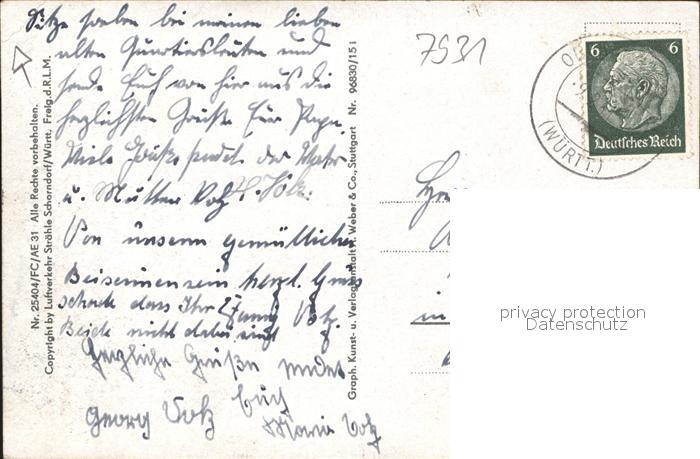 Sitze soeben bei meinen lieben
alten Quartiersleuten und
sende Euch von hier aus die
herzlichsten Grüße Eur Papa.
Viele Grüße sendet der Vater
u. Mutter Volz
Von unserm gemütlichen
Beisammensein herzl. Gruss
schade dass Ihr
Beide nicht dabei seid
Herzliche Grüße sendet
Euch
Georg Volz
Maria Volz
Nr. 25404/FC/AE 31 Alle Rechte vorbehalten.
Copyright by Luftverkehr Strähle Schorndorf/Württ. Freig. d. R.L.M.
Graph. Kunst- u. Verlagsanstalt H. Weber & Co., Stuttgart Nr. 96830/15 I
7531
6 6
Deutsches Reich
(WÜRTT.)
in
privacy protection
Datenschutz